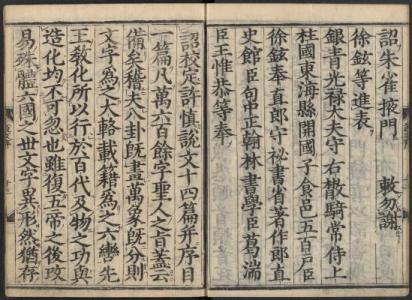 詔朱雀掖門　敕勿謝
徐鉉等進表
銀青光祿大夫守右散騎常侍上
柱國東海縣開國子食邑五百戸臣
徐鉉奉直郎守祕書省著作郎直
史館臣句中正翰林書學臣葛湍
臣王惟恭等奉
詔校定許慎說文十四篇并序目
一篇凡萬六百餘字聖人之旨蓋云
備矣稽夫八卦既畫萬象既分則
文字為之大輅載籍為之六轡先
王敎化所以行於百代及物之功與
造化均不可忽也雖復五帝之後改
易殊體六國之世文字異形然猶存